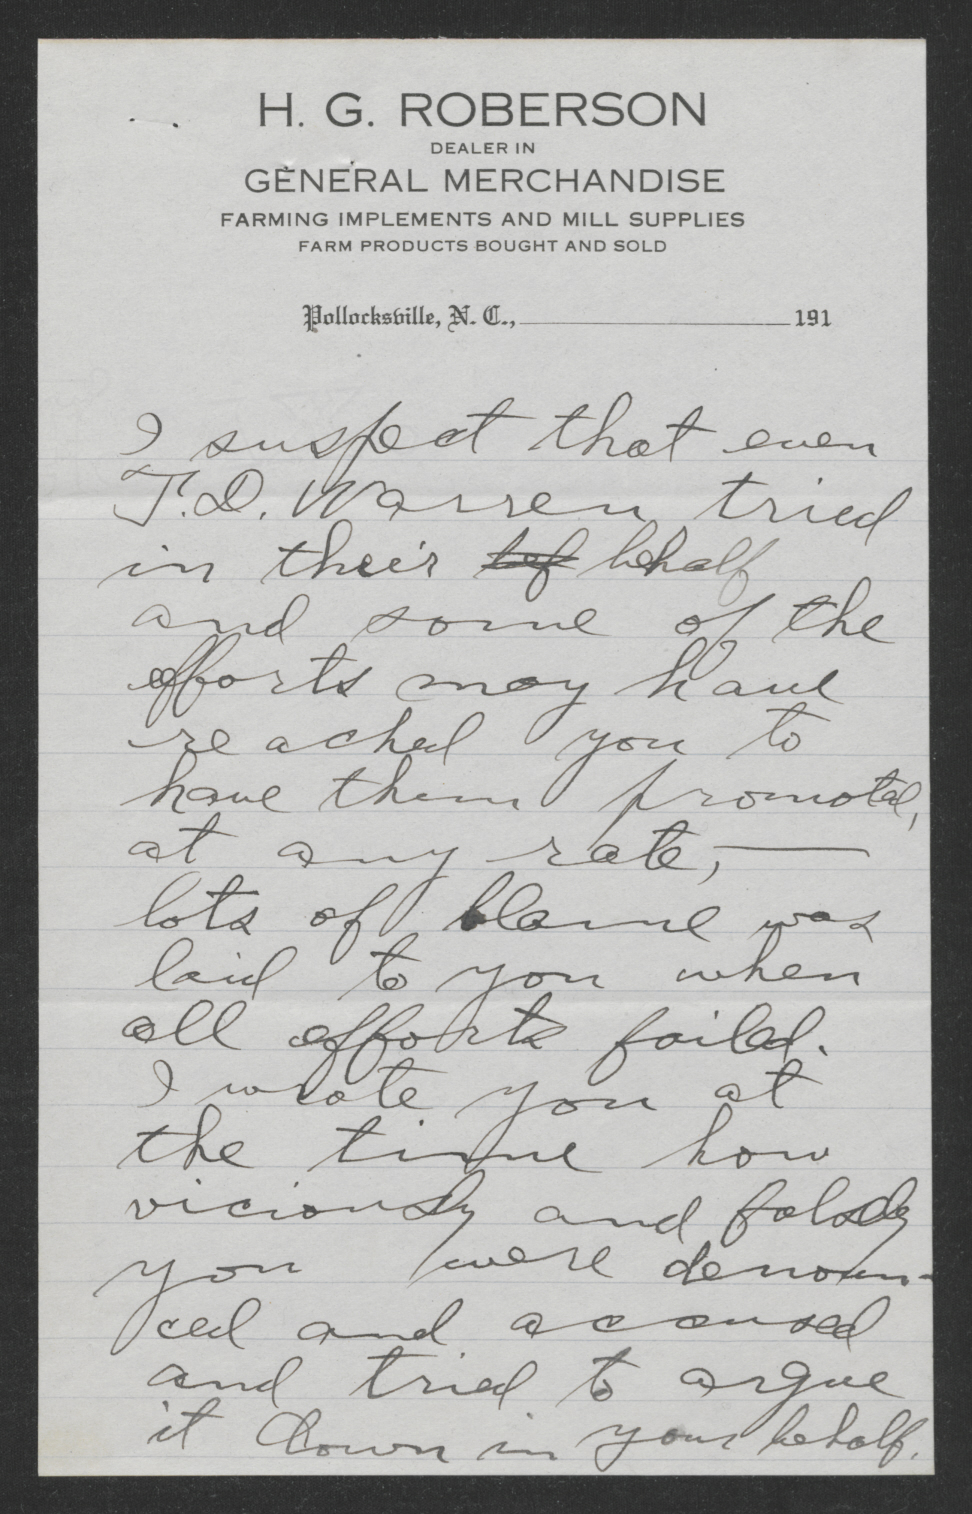 H. G. ROBERSON
DEALER IN
GENERAL MERCHANDISE
FARMING IMPLEMENTS AND MILL SUPPLIES
FARM PRODUCTS BOUGHT AND SOLD
Pollocksville, N. C., 191
I suspect that even
T. D. Warren tried
in their behalf
and some of the
efforts may have
reached you to
have them promoted,
at any rate, —
lots of blame was
laid to you when
all efforts failed.
I wrote you at
the time how
viciously and falsely
you were denoun-
ced and accused
and tried to argue
it down in your behalf.